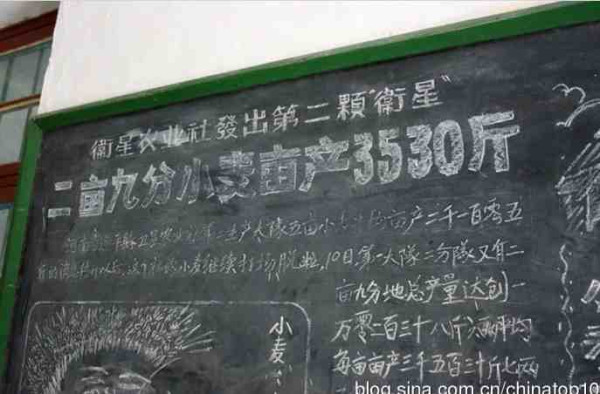 衛星农业社發出第二顆"衛星"
二亩九分小麦亩产3530斤
产大隊五亩小 亩产二千一百零五
小麦继续打场脱粒,10日第一大隊二分隊又有二
亩九分地总产量达创一
万零二百三十八斤 平均
每亩亩产三千五百三十斤七两
小麦
blog.sina.com.cn/chinatop10